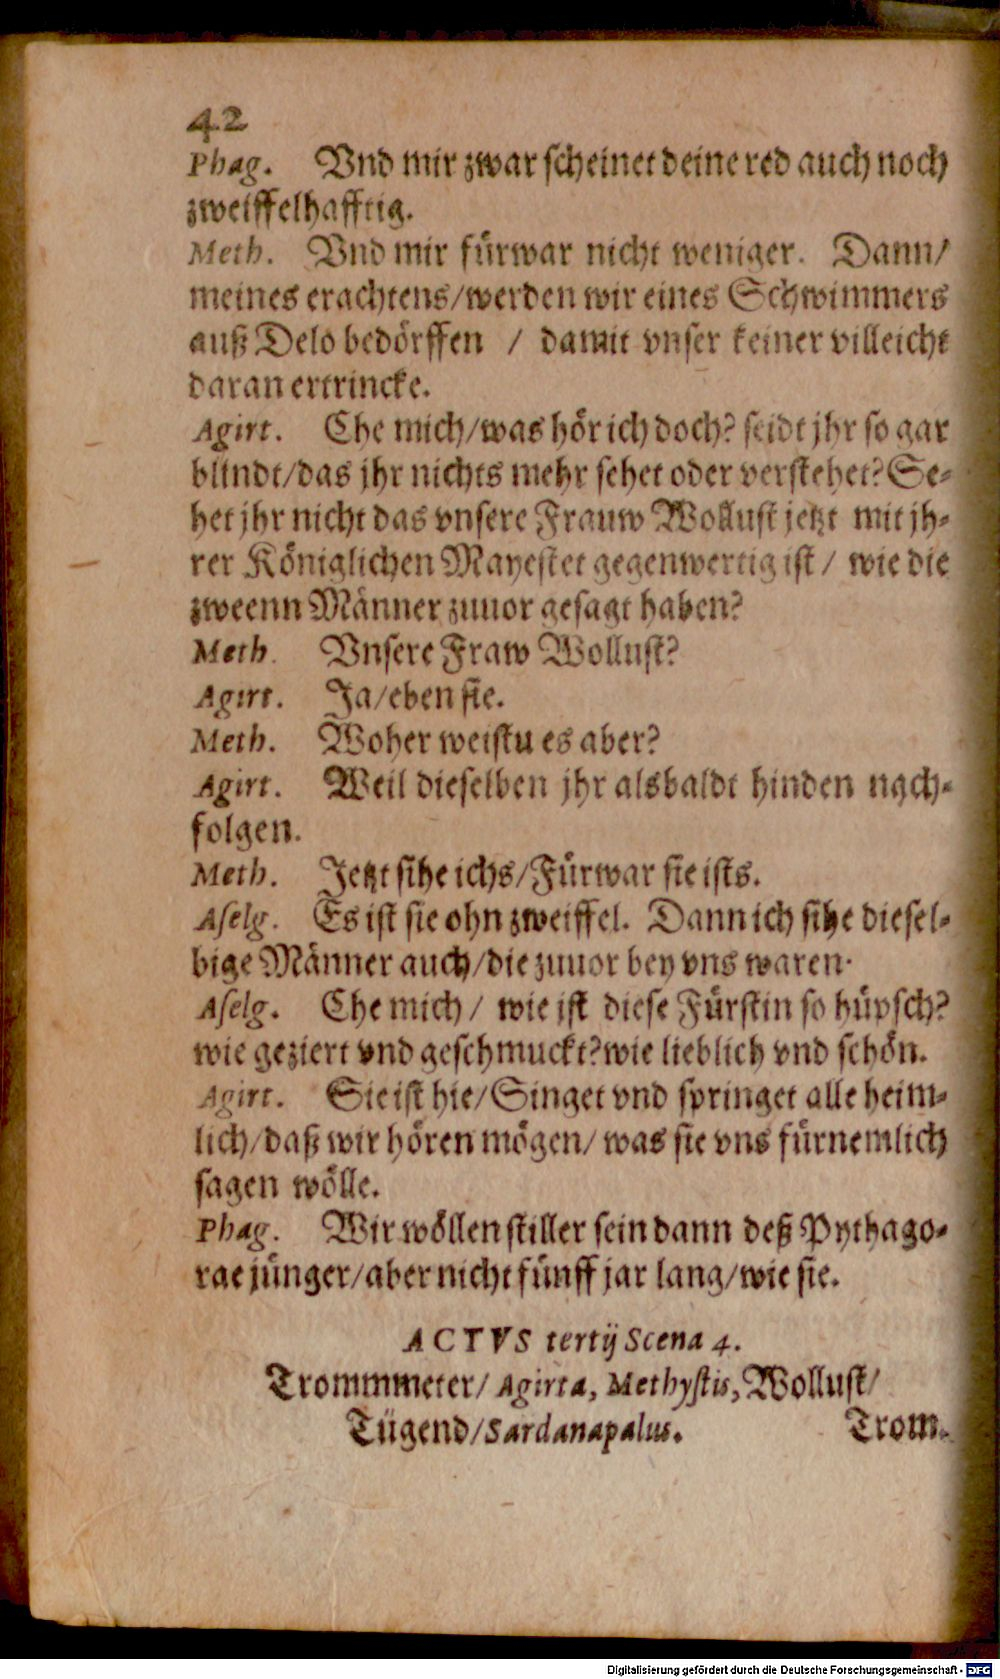 42
Phag. Vnd mir zwar scheinet deine red auch noch
zweiffelhafftig.
Meth. Vnd mir fürwar nicht weniger. Dann/
meines erachtens/werden wir eines Schwimmers
auß Delo bedörffen / damit vnser keiner villeicht
daran ertrincke.
Agirt. Ehe mich/was hör ich doch? seidt jhr so gar
blindt/das jhr nichts mehr sehet oder verstehet? Se-
het jhr nicht das vnsere Frauw Wollust jetzt mit jh-
rer Königlichen Mayestet gegenwertig ist/ wie die
zweenn Männer zuuor gesagt haben?
Meth. Vnsere Fraw Wollust?
Agirt. Ja/eben sie.
Meth. Woher weistu es aber?
Agirt. Weil dieselben jhr alsbaldt hinden nach-
folgen.
Meth. Jetzt sihe ichs/Fürwar sie ists.
Aselg. Es ist sie ohn zweiffel. Dann ich sihe diesel-
bige Männer auch/die zuuor bey vns waren.
Aselg. Ehe mich/ wie ist diese Fürstin so hüpsch?
wie geziert vnd geschmuckt? wie lieblich vnd schön.
Agirt. Sie ist hie/Singet vnd springet alle heim-
lich/daß wir hören mögen/ was sie vns fürnemlich
sagen wölle.
Phag. Wir wöllen stiller sein dann deß Pythago-
rae jünger/aber nicht fünff jar lang/wie sie.
ACTVS tertij Scena 4.
Trommmeter/ Agirta, Methystis, Wollust/
Tügend/Sardanapalus. Trom-
Digitalisierung gefördert durch die Deutsche Forschungsgemeinschaft - DFG